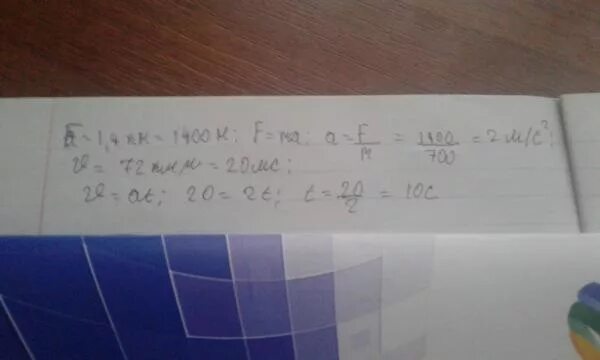 F = 1,4 кН = 1400 Н; F = ma; a = F/м = 1400/700 = 2 м/с²;
υ = 72 км/ч = 20 мс;
υ = at; 20 = 2t; t = 20/2 = 10с